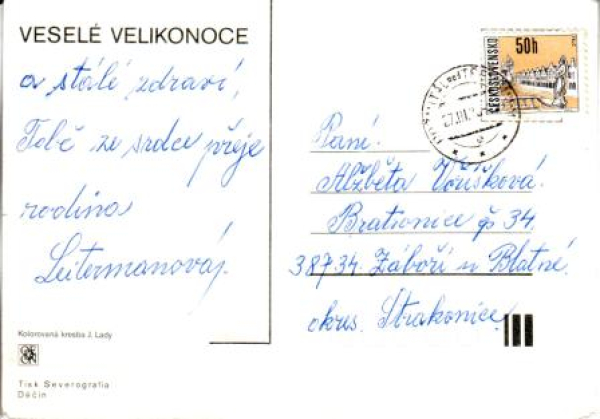 VESELÉ VELIKONOCE
a stálé zdraví,
Tobě ze srdce přeje
rodina
Leitermanová.
Kolorovaná kresba J. Lady
Tisk Severografia
Děčín
50h
ČESKOSLOVENSKO
Paní.
Alžběta Voříšková.
Bratronice čp 34.
38734. Záboří u Blatné.
okres. Strakonice.